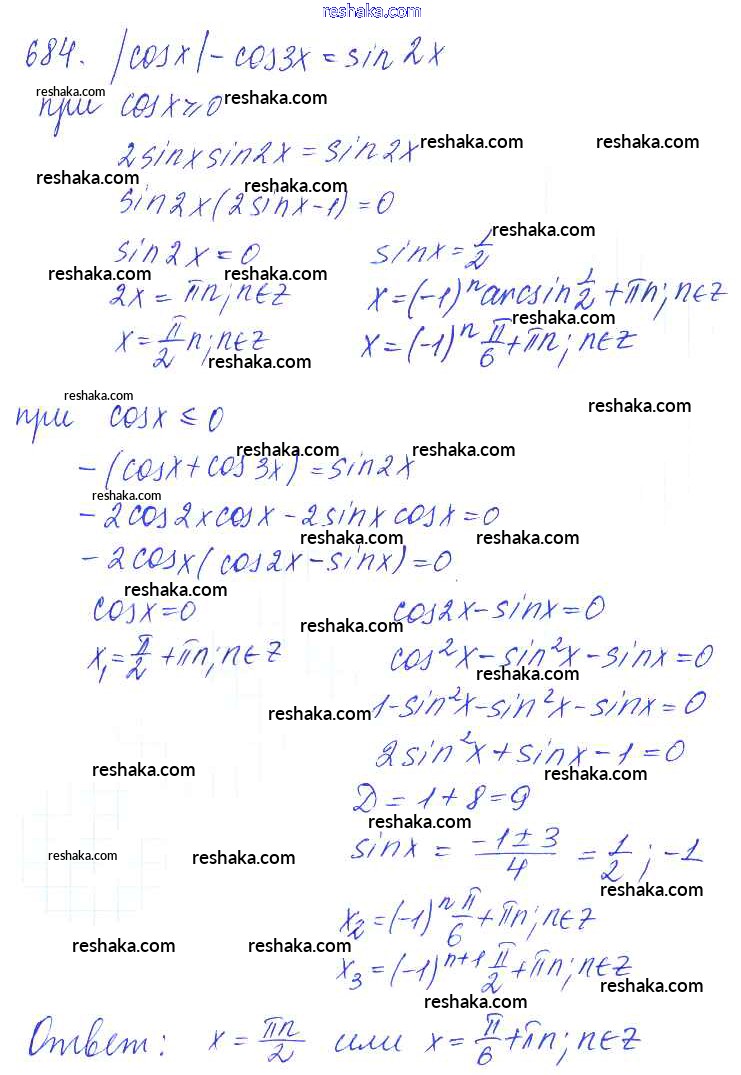 reshaka.com
684. |cosx| - cos3x = sin2x
при cosx ≥ 0 reshaka.com
reshaka.com
2sinxsin2x = sin2x reshaka.com reshaka.com
reshaka.com reshaka.com
sin2x(2sinx-1) = 0
reshaka.com
sin2x = 0 sinx = 1/2
reshaka.com reshaka.com
2x = πn; n∈Z x = (-1)^n arcsin 1/2 + πn; n∈Z
reshaka.com
x = π/2 n; n∈Z x = (-1)^n π/6 + πn; n∈Z
reshaka.com
reshaka.com reshaka.com
при cosx ≤ 0
reshaka.com reshaka.com
-(cosx + cos3x) = sin2x
reshaka.com
-2cos2xcosx - 2sinxcosx = 0
reshaka.com reshaka.com
-2cosx(cos2x - sinx) = 0
reshaka.com
cosx = 0 cos2x - sinx = 0
reshaka.com
x₁ = π/2 + πn; n∈Z cos²x - sin²x - sinx = 0
reshaka.com
reshaka.com 1 - sin²x - sin²x - sinx = 0
2sin²x + sinx - 1 = 0
reshaka.com reshaka.com
D = 1 + 8 = 9
reshaka.com
sinx = (-1 ± 3)/4 = 1/2; -1
reshaka.com reshaka.com
reshaka.com
x₂ = (-1)^n π/6 + πn; n∈Z
reshaka.com reshaka.com
x₃ = (-1)^(n+1) π/2 + πn; n∈Z
reshaka.com
reshaka.com
Ответ: x = πn/2 или x = π/6 + πn; n∈Z
reshaka.com